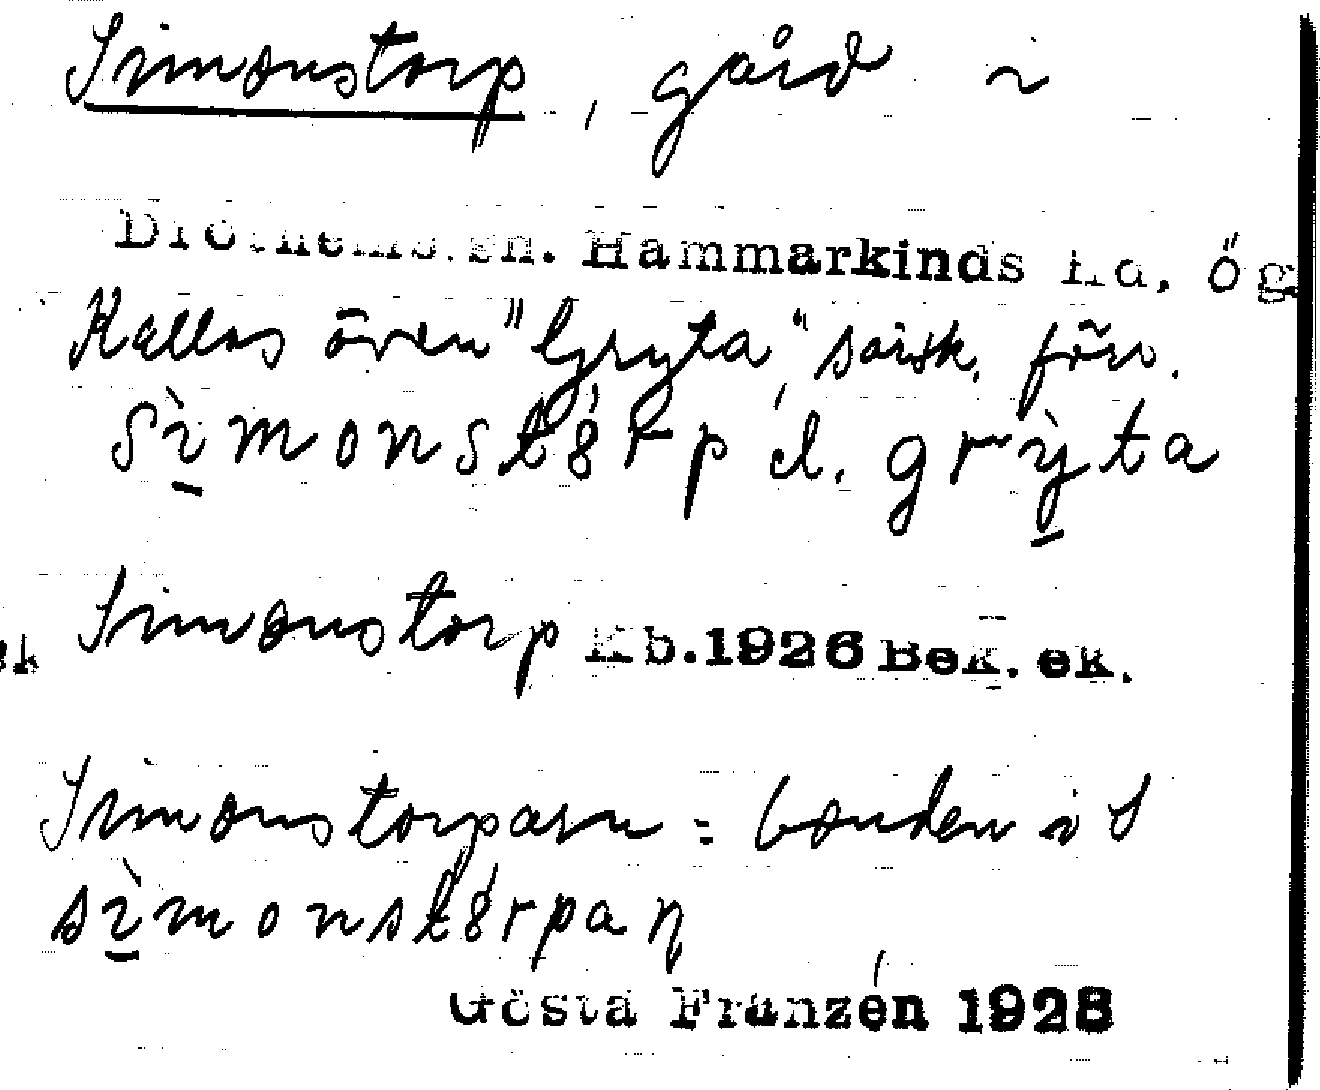 Simonstorp, gård i
Drothems sn. Hammarkinds hd. Ög.
Kallas även "Gryta", särsk. förr.
sìmonstórp el. grỳta
Simonstorp Kb. 1926 Bek. ek.
Simonstorparn = bonden i S
sìmonstórpaṇ
Gösta Franzén 1928